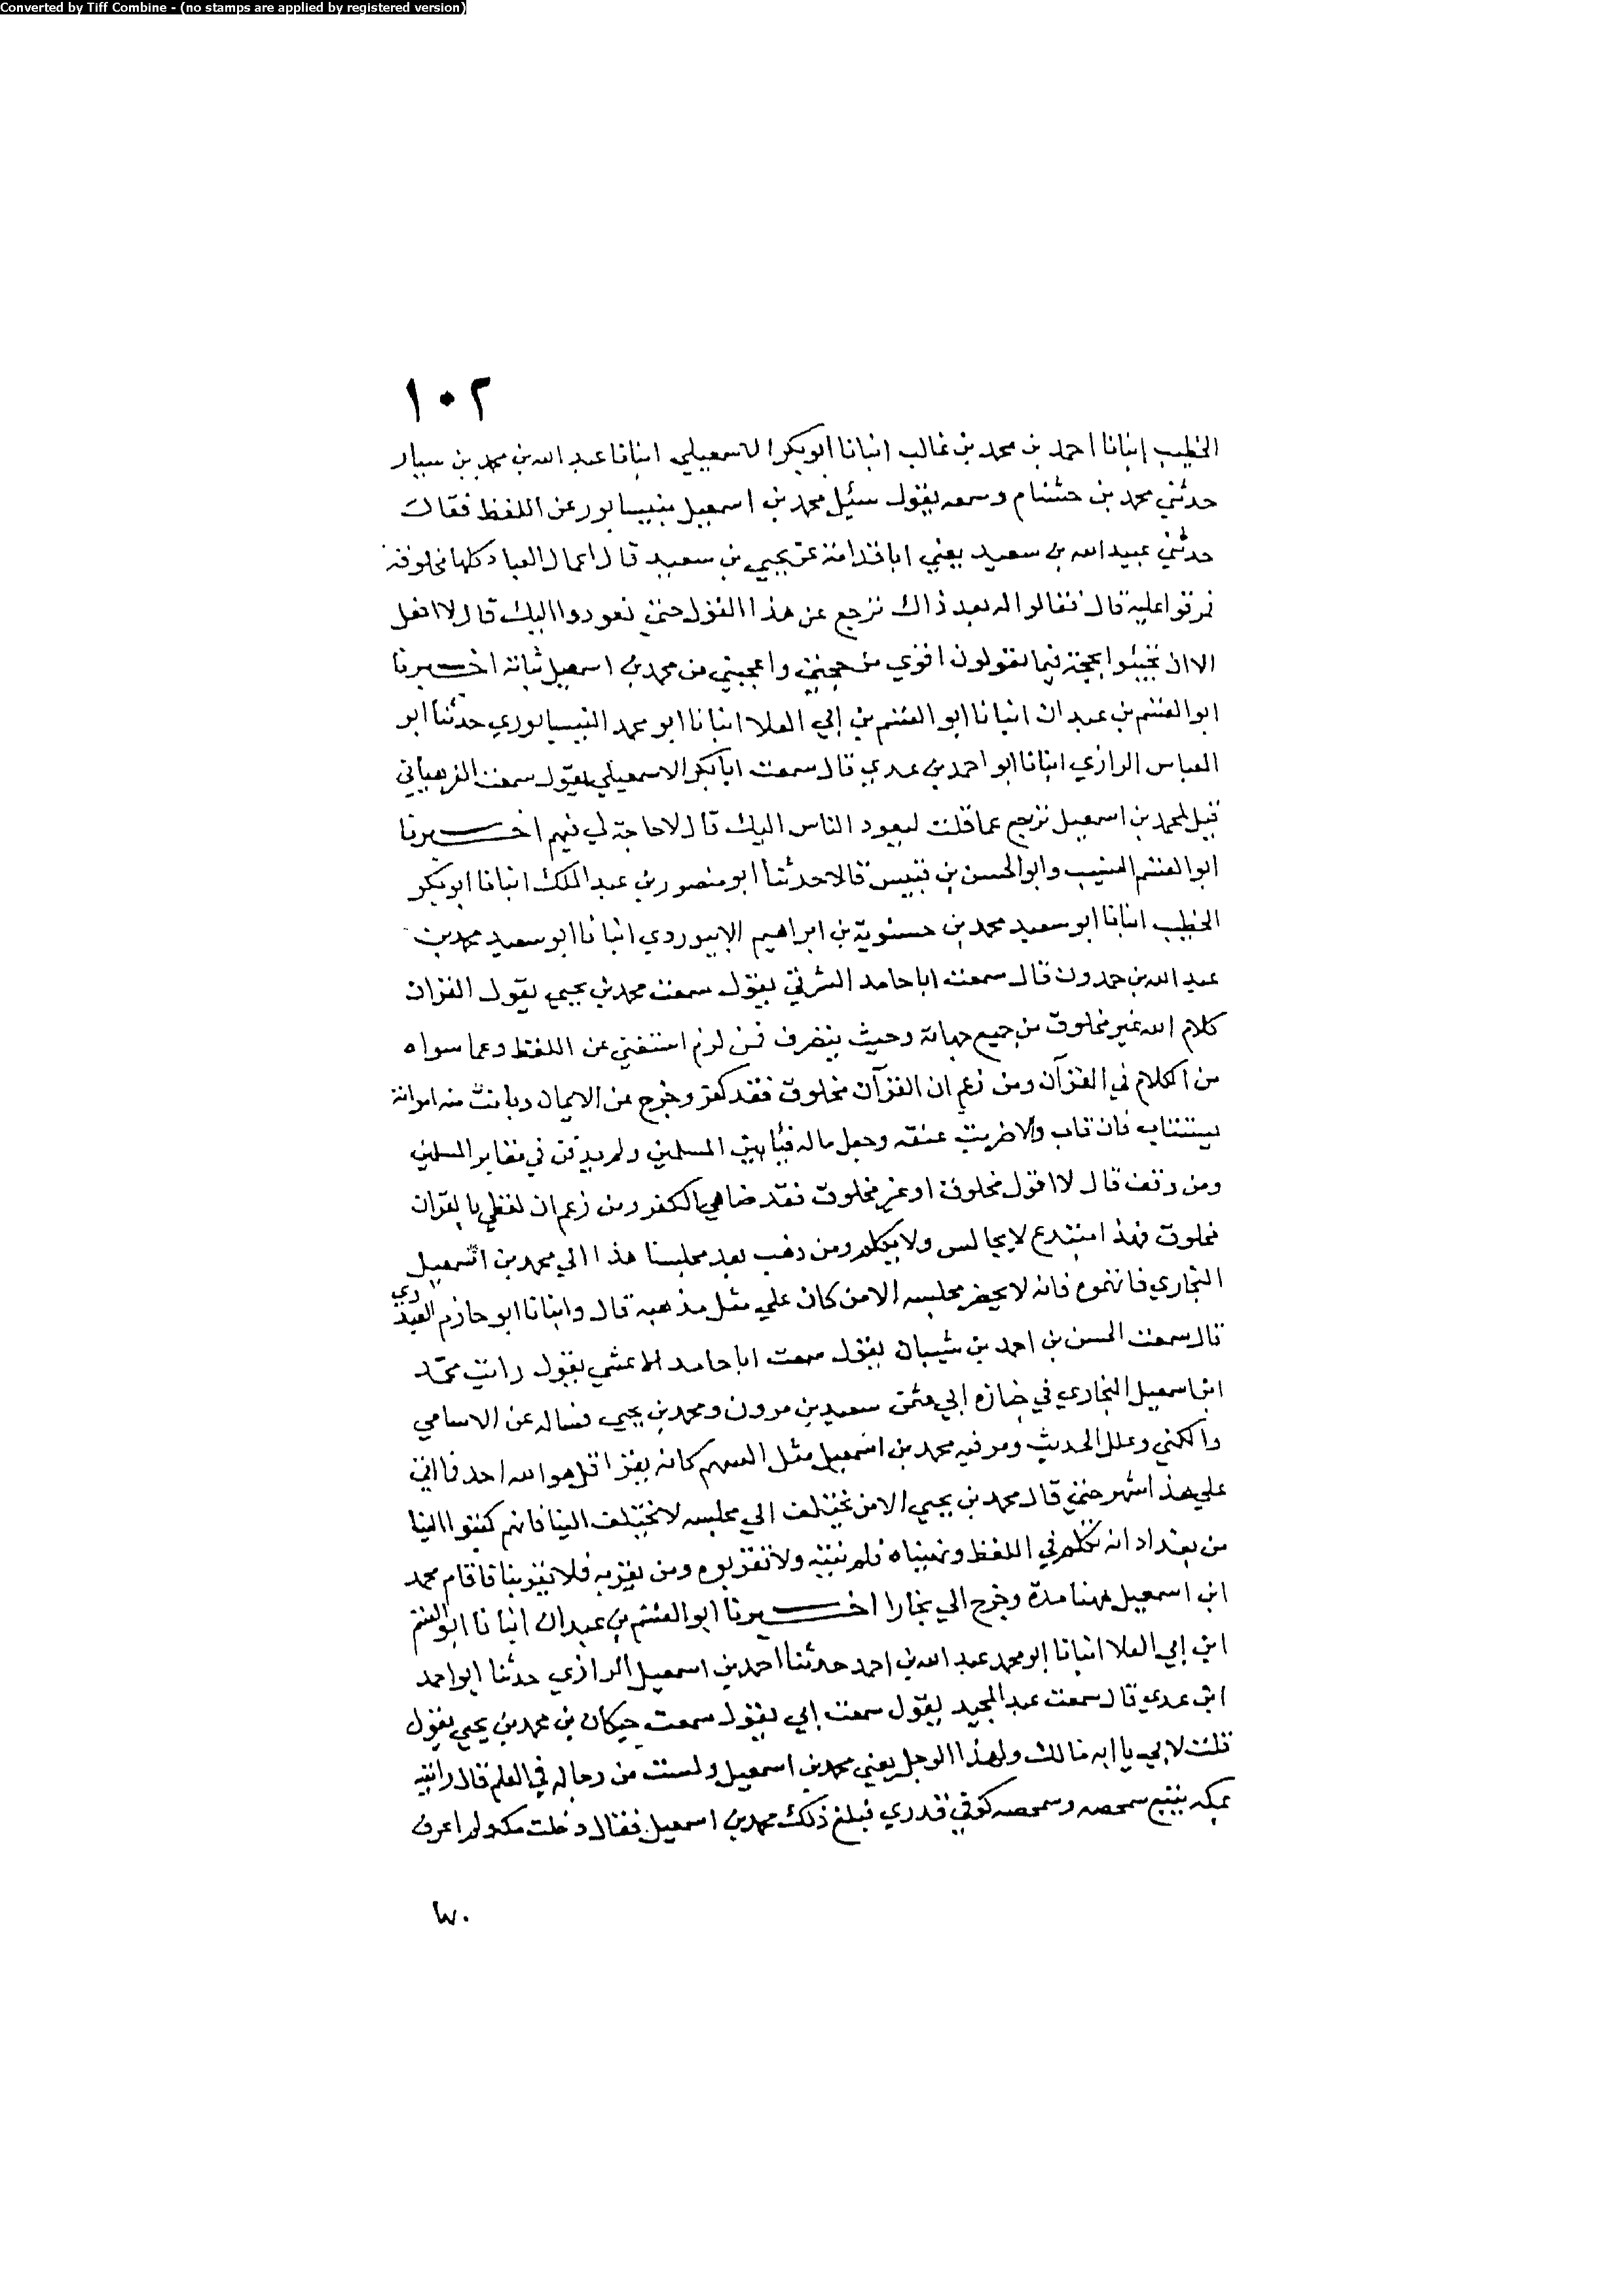 Converted by Tiff Combine - (no stamps are applied by registered version)
١٠٢
الخطيب انبانا احمد بن محمد بن غالب انبانا ابو بكر الاسمعيلي انبانا عبد الله بن محمد بن سيار
حدثني محمد بن خشنام وسمعه يقول سئيل محمد بن اسمعيل بنيسابور عن اللفظ فقال
حدثني عبيد الله بن سعيد يعني ابا قدامة عن يحيي بن سعيد قال اعمال العباد كلها مخلوقة
فمرقوا عليه قال فقالوا له بعد ذاك ترجع عن هذا القول حتي نعودوا اليك قال لا افعل
الا ان تجيئوا بحجة فيما تقولون اقوي من حجتي واعجبني من محمد بن اسمعيل ثباته اخبرنا
ابو القسم بن عبدان انبانا ابو القسم بن ابي العلا انبانا ابو محمد النيسابوري حدثنا ابو
العباس الرازي انبانا ابو احمد بن عدي قال سمعت ابا بكر الاسمعيلي يقول سمعت الفرهياني
قيل لمحمد بن اسمعيل ترجع عما قلت ليعود الناس اليك قال لا حاجة لي فيهم اخبرنا
ابو القسم النسيب وابو الحسن بن قبيس قالا حدثنا ابو منصور بن عبد الملك انبانا ابو بكر
الخطيب انبانا ابو سعيد محمد بن حسنوية بن ابراهيم الابيوردي انبانا ابو سعيد محمد بن
عبد الله بن حمدون قال سمعت ابا حامد الشرقي يقول سمعت محمد بن يحيي يقول القران
كلام الله غير مخلوق من جميع جهاته وحيث يتصرف فمن لزم استغني عن اللفظ وعما سواه
من الكلام في القرآن ومن زعم ان القرآن مخلوق فقد كفر وخرج عن الايمان وبانت منه امراته
يستتاب فان تاب والا ضربت عنقه وجعل ماله فيئا بين المسلمين ولم يدفن في مقابر المسلمين
ومن وقف قال لا اقول مخلوق او غير مخلوق فقد ضاهي الكفر ومن زعم ان لفظي بالقران
مخلوق فهذا مبتدع لا يجالس ولا يكلم ومن ذهب بعد مجلسنا هذا الي محمد بن اسمعيل
البخاري فاتهموه فانه لا يحضر مجلسه الا من كان علي مثل مذهبه قال وانبانا ابو حازم العبدوي
قال سمعت الحسن بن احمد بن شيبان يقول سمعت ابا حامد الاعمشي يقول رايت محمد
ابن اسمعيل البخاري في جنازه ابي عثمن سعيد بن مرون ومحمد بن يحيي فساله عن الاسامي
والكني وعلل الحديث ومر فيه محمد بن اسمعيل مثل السهم كانه يقرا قل هو الله احد فما اتي
علي هذا شهر حتي قال محمد بن يحيي الا من يختلف الي مجلسه لا يختلف الينا فانهم كتبوا الينا
من بغداد انه تكلم في اللفظ ونهيناه فلم ينته ولا تقربوه ومن يقربه فلا يقربنا فاقام محمد
ابن اسمعيل ههنا مدة وخرج الي بخارا اخبرنا ابو القسم بن عبدان انبانا ابو القسم
ابن ابي العلا انبانا ابو محمد عبد الله بن احمد حدثنا احمد بن اسمعيل الرازي حدثنا ابو احمد
ابن عدي قال سمعت عبد المجيد يقول سمعت ابي يقول سمعت حيكان بن محمد بن يحيي يقول
قلت لابي يا ابه مالك ولهذا الرجل يعني محمد بن اسمعيل ولست من رجاله في العلم قال رايته
بمكه يتبع سمحصه وسمحصه كوفي قدري فبلغ ذلك محمد بن اسمعيل فقال دخلت مكه ولم اعرف